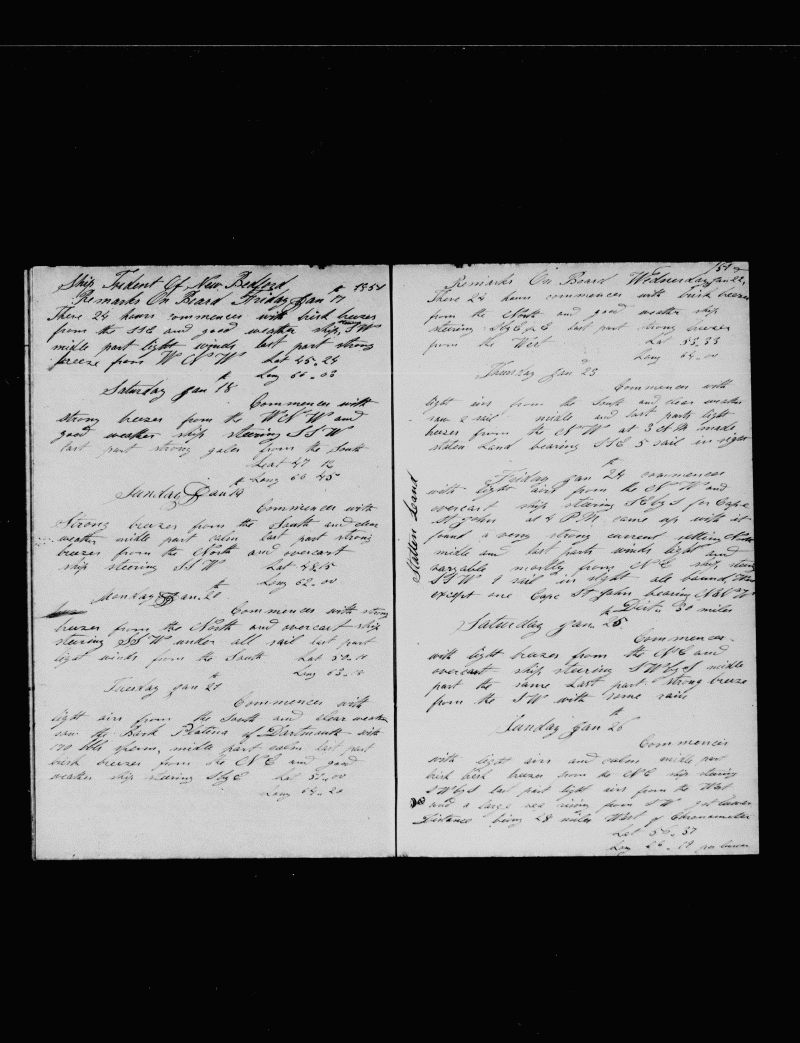 Ship Trident Of New Bedford
Remarks On Board Friday Jan 17th 1851
These 24 hours commences with brisk breezes
from the SSE and good weather ship SW
midle part light winds last part strong
breeze from W N W Lat 45.24
Long 60.03
Saturday Jan 18th
Commences with
strong breezes from the W N W and
good weather ship steering S S W
last part strong gales from the South
Leat 47 12
Long 60 45
Sunday Jan 19th
Commences with
Strong breezes from the South and clear
weather midle part calm last part strong
breezes from the North and overcart
ship steering S S W Lat 48.15
Long 62.00
Monday Jan. 20th
Commences with strong
breezes from the North and overcart ship
stearing S S W under all sail last part
light winds from the South Lat 50.10
Long 63.10
Tuesday Jan 21th
Commences with
light airs from the South and clear weather
saw the Bark Platina of Dartmouth with
170 bbls sperm, midle part calm last part
brisk breezes from the N E and good
weather ship stearing SbyE Lat 51.00
Long 64.20
1851
Remarks On Board Wednesday Jan 22
These 24 hours commences with brisk breezes
from the North and good weather ship
stearing last part strong breezes
from the West Lat 53.33
Long 64.00
Thursday Jan 23
Commences with
light airs from the South and clear weather
saw 2 sail midle and last parts light
brezes from the N W at 3 A M made
staten Land bearing S S E 5 sail in sight
Friday Jan 24th commences
Statten Leand
with light airs from the N W and
overcart ship staring SEbyS for Cape
St John at 4 P.M. came up with it
found a very strong current setting North
midle and last parts winds light and
varyable mostly from N E ship stearing
S S W 4 sail in sight all bound
except one Cape St John bearing
Dist. 30 miles
Saturday Jan. 25th
Commences
with light brezes from the N E and
overcart ship stearing SWbyS midle
part the same Last part strong breeze
from the S W with some rain
Sunday Jan 26th
Commences
with light airs and calms midle part
brisk brezes from the N E ship stearing
SWbyS last part light airs from the West
and a large sea rising from S W
Distance being 28 miles West of Chronometer
Lat 56.37
Long